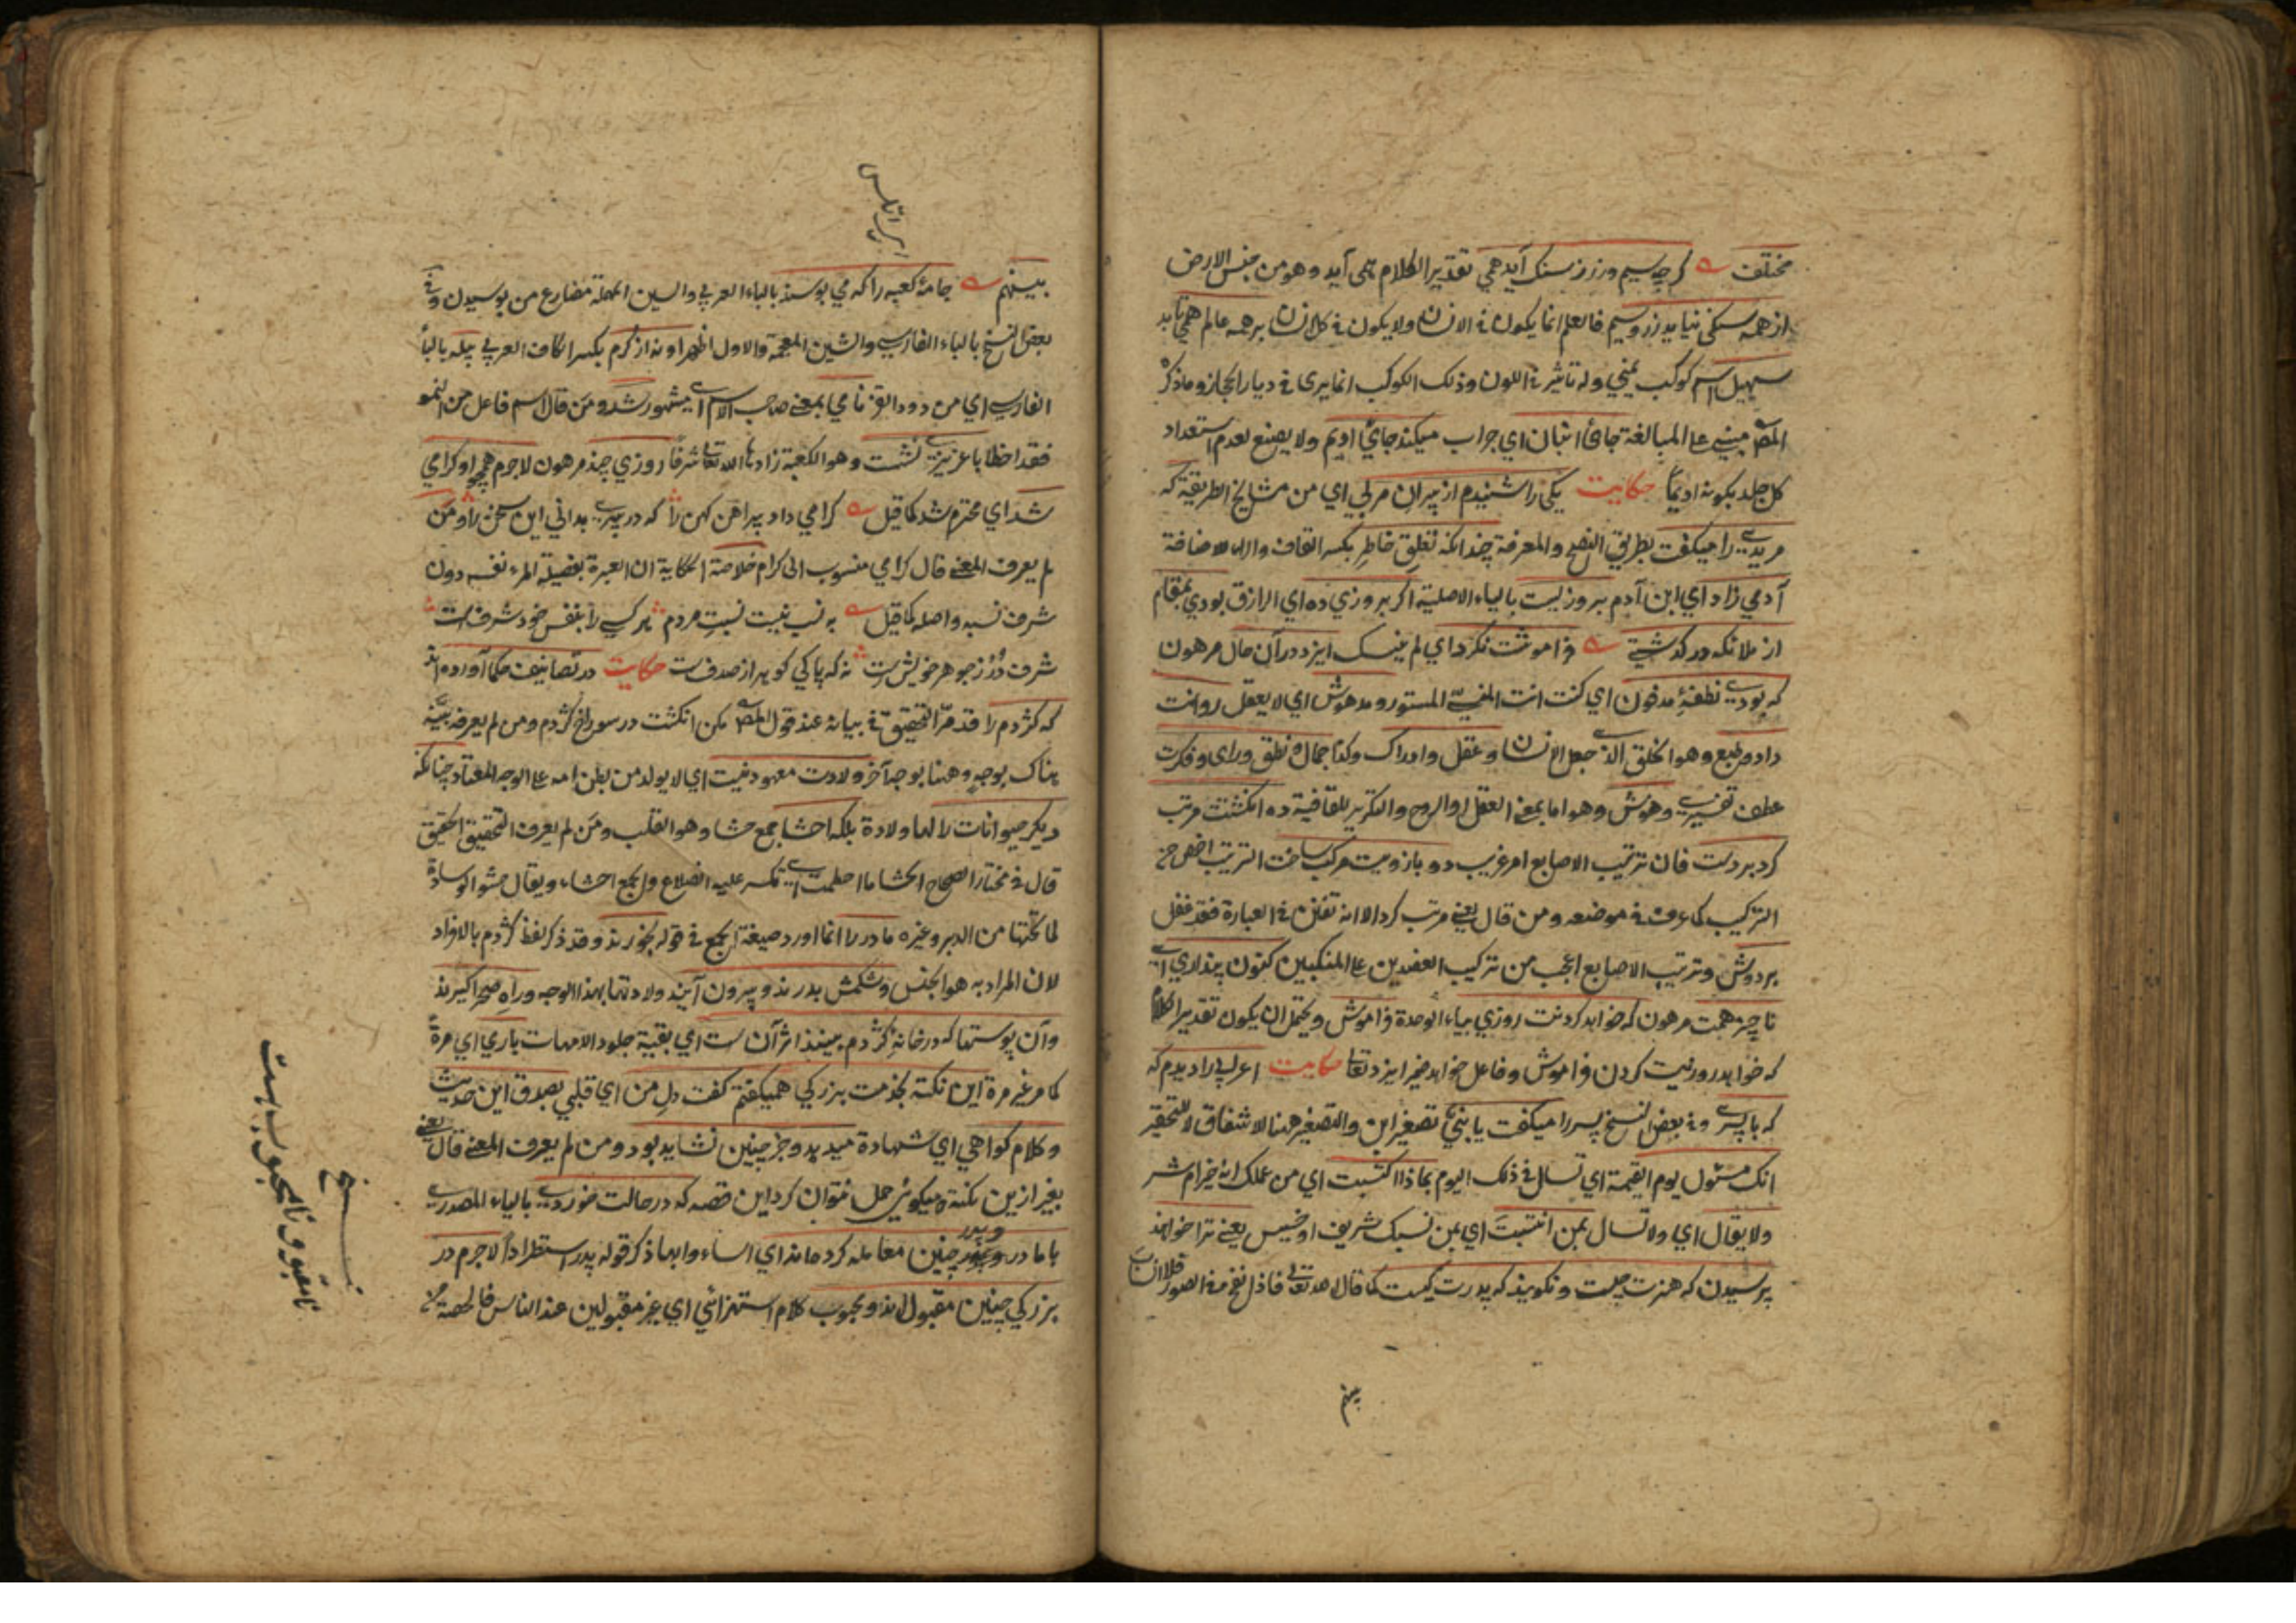 مختلف گر چه سیم و زر ز سنک آید همی تقدیر الکلام همی آید وهو من جنس الارض
از همه سنکی نیاید زر و سیم فالعلم انما یکون فی الانسان ولا یکون فی کل انسان بر همه عالم همی تابد
سهیل اسم کوکب یمنی وله تاثیر فی اللون وذلک الکوکب انما یری فی دیار الحجاز وما ذکره
المص مبنی علی المبالغة جائی انبان ای جراب میکند جائی ادیم ولا یصنع لعدم استعداد
کل جلد بکونه ادیما حکایت یکی را شنیدم از پیران مربی ای من مشایخ الطریقة که
مریدی را میکفت بطریق النصح والمعرفة چندانکه تعلق خاطر بکسر القاف والراء للاضافة
آدمی زاد ای ابن آدم بروزیست بالیاء الاصلیة اکر بروزی ده ای الرازق بودی بمقام
از ملائکه در کذشتی فراموشت نکرد ای لم ینسک ایزد در آن حال مرهون
که بودی نطفهٔ مدفون ای کنت انت المنی المستور و مدهوش ای لا یعقل روانت
داد و طبع وهو الخلق الذی جعل الانسان و عقل و ادراک وکذا جمال و نطق و رای و فکرت
عطف تفسیری و هوش وهو اما بمعنی العقل او الروح والتکریر للقافیة ده انکشتت مرتب
کرد بر دست فان ترتیب الاصابع امر غریب دو بازویت مرکب ساخت الترتیب اخص من
الترکیب کما عرف فی موضعه ومن قال یعنی مرتب کرد الا انه تفنن فی العبارة فقد غفل
بر دوش وترتیب الاصابع اعجب من ترکیب العضدین علی المنکبین کنون پنداری ای
ناچیز همت مرهون که خواهد کردنت روزی بیاء الوحدة فراموش ویحتمل ان یکون تقدیر الکلام
که خواهد روزیت کردن فراموش وفاعل خواهد ضمیر ایزد تعالی حکایت اعرابی را دیدم که
که با پسری وفی بعض النسخ پسر را میکفت یا بنی تصغیر ابن والتصغیر هنا للاشفاق لا للتحقیر
انک مسئول یوم القیمة ای تسال فی ذلک الیوم بماذا اکتسبت ای من عملک انه خیر ام شر
ولا یقال ای ولا تسال بمن انتسبت ای بمن نسبک شریف او خسیس یعنی ترا خواهند
پرسیدن که هنرت چیست و نکویند که پدرت کیست کما قال الله تعالی فاذا نفخ فی الصور فلا انساب
بینهم
بینهم جامهٔ کعبه را که می بوسند بالباء العربی والسین المهملة مضارع من بوسیدن وفی
بعض النسخ بالباء الفارسی والشین المعجمة والاول اظهر او نه از کرم بکسر الکاف العربی پیله بالباء
الفارسی ای من دود القز نامی بمعنی صاحب الاسم ای مشهور شد ومن قال اسم فاعل من النمو
فقد اخطا با عزیزی نشست وهو الکعبة زادها الله تعالی شرفا روزی چند مرهون لاجرم همچو او کرامی
شد ای محترم شد کما قیل کرامی داد پیراهن کهن را که در پیری بدانی این سخن را ومن
لم یعرف المعنی قال کرامی منسوب الی کرام خلاصة الحکایة ان العبرة بفضیلة المرء نفسه دون
شرف نسبه واصله کما قیل به نسب نیست نسبت مردم هر کسی را بنفس خود شرفست
شرف در ز جوهر خویش است نه که پاکی کوهر از صدفست حکایت در تصانیف حکما آورده اند
که کژدم را قد مر التحقیق فی بیانه عند قول المص مکن انکشت در سوراخ کژدم ومن لم یعرفه بینه
هناک بوجه وهنا بوجه آخر ولادت معهود نیست ای لا یولد من بطن امه علی الوجه المعتاد چنانکه
دیکر حیوانات را لها ولادة بلکه احشا جمع حشا وهو القلب ومن لم یعرف التحقیق الحقیق
قال فی مختار الصحاح الحشا ما اضطمت علیه الضلوع والجمع احشاء ویقال حشو الوسادة
لما تحتها من الدبر وغیره مادر را انما اورد صیغة الجمع فی قوله بخورند وقد ذکر لفظ کژدم بالافراد
لان المراد به هو الجنس و شکمش بدرند و بیرون آیند ولادتها بهذا الوجه و راه صحرا کیرند
و آن پوستها که در خانهٔ کژدم بینند اثر آن ست ای بقیة جلود الامهات باری ای مرة
کما مر غیر مرة این نکته بخدمت بزرکی همیکفتم کفت دل من ای قلبی بصدق این حدیث
وکلام کواهی ای شهادة میدهد و جز چنین نشاید بود ومن لم یعرف المعنی قال یعنی
بغیر ازین نکتهٔ میکوئی حمل نتوان کرد این قصه که در حالت خوردی بالیاء المصدری
با مادر و پدر چنین معامله کرده اند ای اساءوا الیها ذکر قوله پدر استطرادا لاجرم در
بزرکی چنین مقبول اند و محبوب کلام استهزائی ای غیر مقبولین عند الناس فالحصة
نسخ
نامقبول و نامحبوب است